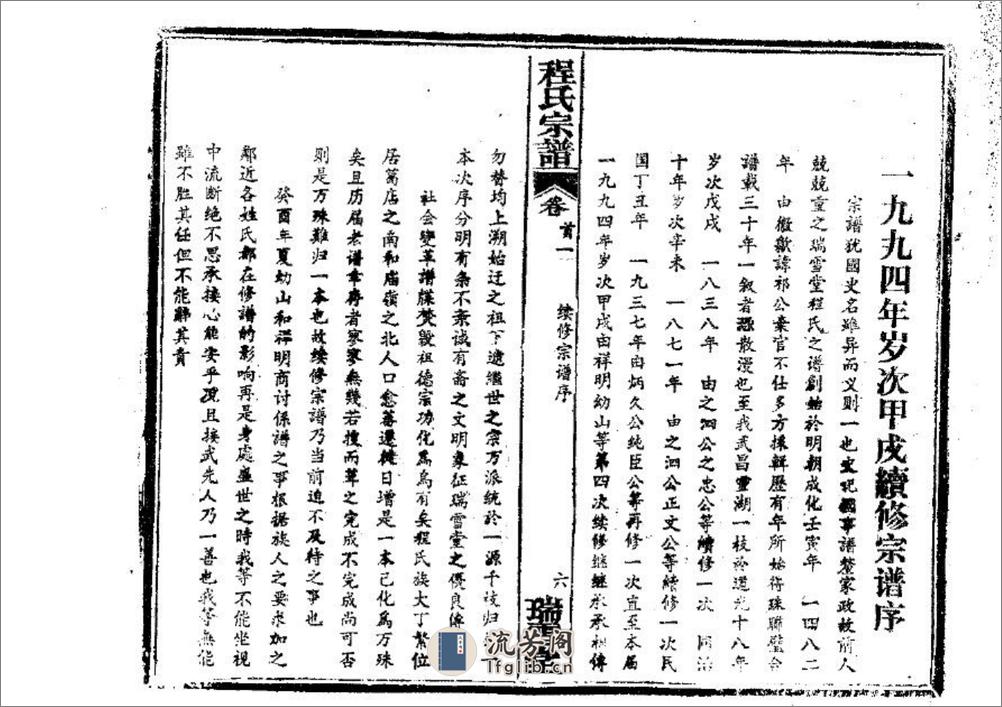 一九九四年岁次甲戌續修宗谱序
宗譜犹國史名雖异而义则一也史記國事譜鏊家政故前人
兢兢重之瑞雪堂程氏之谱創始於明朝成化壬寅年 一四八二
年 由徽歙諱祁公棄官不仕多方採輯歷有年所始得珠聯璧合
譜载三十年一叙者恐散漫也至我武昌靈湖一枝於道光十八年
岁次戊戌 一八三八年 由之泗公之忠公等續修一次 同治
十年岁次辛未 一八七一年 由之泗公正文公等續修一次民
国丁丑年 一九三七年由炳久公纯臣公等再修一次直至本届
一九九四年岁次甲戌由祥明幼山等第四次续修继继承承相傳
程氏宗譜
卷
首一
续修宗谱序
六
瑞雪堂
勿替均上溯始迁之祖下逮繼世之宗万派统於一源千枝归
本次序分明有条不紊诚有斋之文明象征瑞雪堂之優良傳
社会變革譜牒焚毀祖德宗功化爲烏有矣程氏族大丁繁位
居葛店之南和庙嶺之北人口愈蕃遷徙日增是一本已化爲万殊
矣且历届老谱幸存者寥寥無幾若搜而葺之完成不完成尚可否
则是万殊難归一本也故续修宗谱乃当前迫不及待之事也
癸酉年夏幼山和祥明商讨係譜之事根据族人之要求加之
鄰近各姓氏都在修譜的影响再是身處盛世之时我等不能坐視
中流断绝不思承接心能安乎况且接武先人乃一善也我等無能
雖不胜其任但不能辭其責
流芳阁
Tfglib.cn